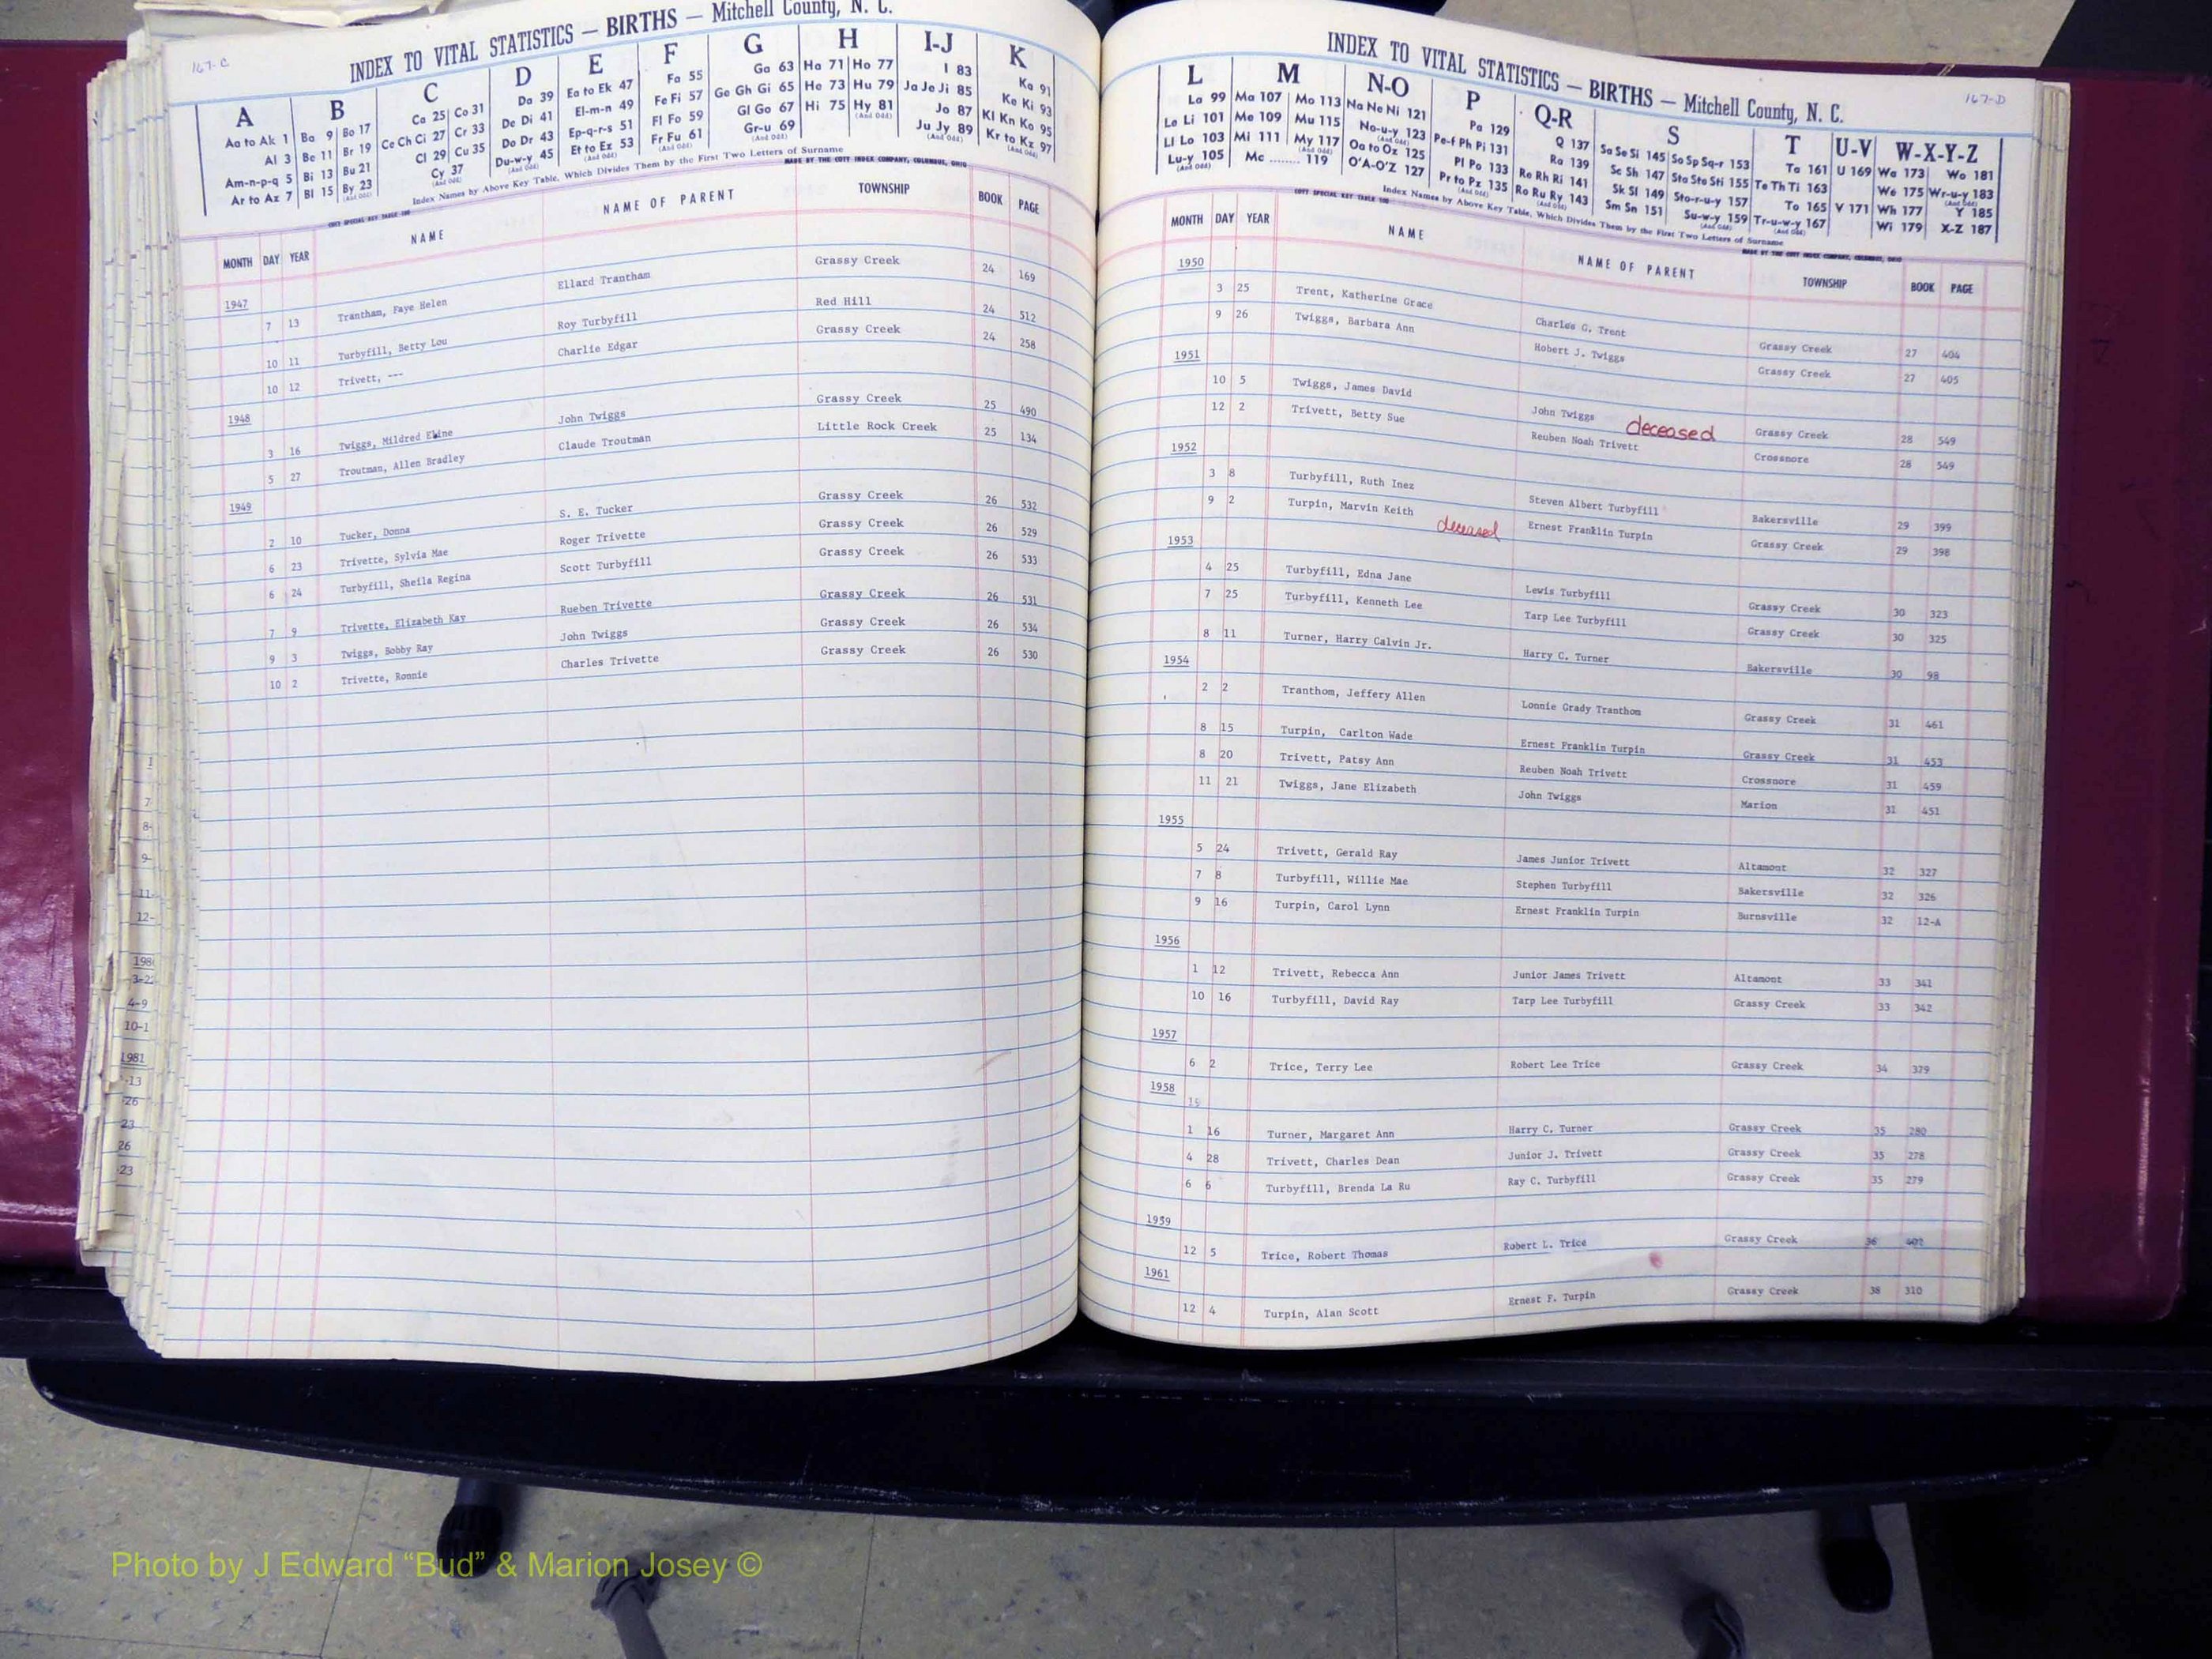 167-C
INDEX TO VITAL STATISTICS — BIRTHS — Mitchell County, N. C.
A B C D E F G H I-J K
Aa to Ak 1 Ba 9 Bo 17 Ca 25 Co 31 Da 39 Ea to Ek 47 Fa 55 Ga 63 Ha 71 Ho 77 I 83 Ka 91
Al 3 Be 11 Br 19 Ce Ch Ci 27 Cr 33 De Di 41 El-m-n 49 Fe Fi 57 Ge Gh Gi 65 He 73 Hu 79 Ja Je Ji 85 Ke Ki 93
Am-n-p-q 5 Bi 13 Bu 21 Cl 29 Cu 35 Do Dr 43 Ep-q-r-s 51 Fl Fo 59 Gl Go 67 Hi 75 Hy 81 Jo 87 Kl Kn Ko 95
Ar to Az 7 Bl 15 By 23 Cy 37 Du-w-y 45 Et to Ez 53 Fr Fu 61 Gr-u 69 Ju Jy 89 Kr to Kz 97
Index Names by Above Key Table, Which Divides Them by the First Two Letters of Surname
MADE BY THE COTT INDEX COMPANY, COLUMBUS, OHIO
MONTH DAY YEAR NAME NAME OF PARENT TOWNSHIP BOOK PAGE
1947
7 13 Trantham, Faye Helen Ellard Trantham Grassy Creek 24 169
10 11 Turbyfill, Betty Lou Roy Turbyfill Red Hill 24 512
10 12 Trivett, --- Charlie Edgar Grassy Creek 24 258
1948
3 16 Twiggs, Mildred John Twiggs Grassy Creek 25 490
5 27 Troutman, Allen Bradley Claude Troutman Little Rock Creek 25 134
1949
2 10 Tucker, Donna S. E. Tucker Grassy Creek 26 532
6 23 Trivette, Sylvia Mae Roger Trivette Grassy Creek 26 529
6 24 Turbyfill, Sheila Regina Scott Turbyfill Grassy Creek 26 533
7 9 Trivette, Elizabeth Kay Rueben Trivette Grassy Creek 26 531
9 3 Twiggs, Bobby Ray John Twiggs Grassy Creek 26 534
10 2 Trivette, Ronnie Charles Trivette Grassy Creek 26 530
1981
167-D
INDEX TO VITAL STATISTICS — BIRTHS — Mitchell County, N. C.
L M N-O P Q-R S T U-V W-X-Y-Z
La 99 Ma 107 Mo 113 Na Ne Ni 121 Pa 129 Q 137 Sa Se Si 145 So Sp Sq-r 153 Ta 161 U 169 Wa 173 Wo 181
Le Li 101 Me 109 Mu 115 No-u-y 123 Pe-f Ph Pi 131 Ra 139 Sc Sh 147 Sta Ste Sti 155 Te Th Ti 163 We 175 Wr-u-y 183
Ll Lo 103 Mi 111 My 117 Oa to Oz 125 Pl Po 133 Re Rh Ri 141 Sk Sl 149 Sto-r-u-y 157 To 165 V 171 Wh 177 Y 185
Lu-y 105 Mc ........ 119 O'A-O'Z 127 Pr to Pz 135 Ro Ru Ry 143 Sm Sn 151 Su-w-y 159 Tr-u-w-y 167 Wi 179 X-Z 187
Index Names by Above Key Table, Which Divides Them by the First Two Letters of Surname
MADE BY THE COTT INDEX COMPANY, COLUMBUS, OHIO
MONTH DAY YEAR NAME NAME OF PARENT TOWNSHIP BOOK PAGE
1950
3 25 Trent, Katherine Grace Charles G. Trent Grassy Creek 27 404
9 26 Twiggs, Barbara Ann Robert J. Twiggs Grassy Creek 27 405
1951
10 5 Twiggs, James David John Twiggs deceased Grassy Creek 28 549
12 2 Trivett, Betty Sue Reuben Noah Trivett Crossnore 28 549
1952
3 8 Turbyfill, Ruth Inez Steven Albert Turbyfill Bakersville 29 399
9 2 Turpin, Marvin Keith deceased Ernest Franklin Turpin Grassy Creek 29 398
1953
4 25 Turbyfill, Edna Jane Lewis Turbyfill Grassy Creek 30 323
7 25 Turbyfill, Kenneth Lee Tarp Lee Turbyfill Grassy Creek 30 325
8 11 Turner, Harry Calvin Jr. Harry C. Turner Bakersville 30 98
1954
2 2 Tranthom, Jeffery Allen Lonnie Grady Tranthom Grassy Creek 31 461
8 15 Turpin, Carlton Wade Ernest Franklin Turpin Grassy Creek 31 453
8 20 Trivett, Patsy Ann Reuben Noah Trivett Crossnore 31 459
11 21 Twiggs, Jane Elizabeth John Twiggs Marion 31 451
1955
5 24 Trivett, Gerald Ray James Junior Trivett Altamont 32 327
7 8 Turbyfill, Willie Mae Stephen Turbyfill Bakersville 32 326
9 16 Turpin, Carol Lynn Ernest Franklin Turpin Burnsville 32 12-A
1956
1 12 Trivett, Rebecca Ann Junior James Trivett Altamont 33 341
10 16 Turbyfill, David Ray Tarp Lee Turbyfill Grassy Creek 33 342
1957
6 2 Trice, Terry Lee Robert Lee Trice Grassy Creek 34 379
1958
1 16 Turner, Margaret Ann Harry C. Turner Grassy Creek 35 280
4 28 Trivett, Charles Dean Junior J. Trivett Grassy Creek 35 278
6 6 Turbyfill, Brenda La Ru Ray C. Turbyfill Grassy Creek 35 279
1959
12 5 Trice, Robert Thomas Robert L. Trice Grassy Creek 36 402
1961
12 4 Turpin, Alan Scott Ernest F. Turpin Grassy Creek 38 310
Photo by J Edward “Bud” & Marion Josey ©